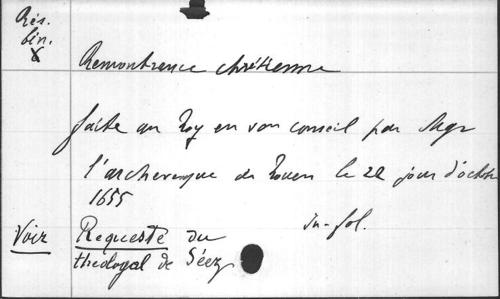 Rés.
bin.
X
Remontrance chrétienne
faite au Roy en son conseil par Mgr
l'archevesque de Rouen le 22 jour d'octobre
1655
in-fol.
Voir Requeste du
théologal de Séez